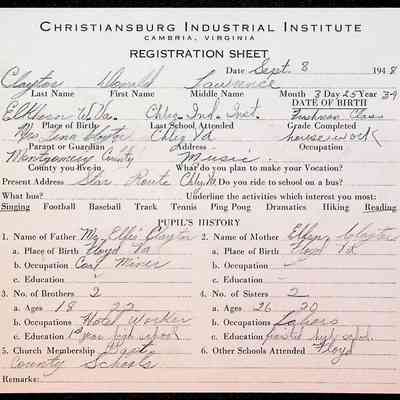 CHRISTIANSBURG INDUSTRIAL INSTITUTE
CAMBRIA, VIRGINIA
REGISTRATION SHEET
Date Sept. 8 1948
Clayton Donald Lawrence
Last Name First Name Middle Name Month 3 Day 25 Year 34
DATE OF BIRTH
Elkhorn W. Va. Chbg Ind. Inst. Freshman Class
Place of Birth Last School Attended Grade Completed
Mrs. Lena Clayton Chbg Va housework
Parent or Guardian Address Occupation
Montgomery County Music.
County you live in What do you plan to make your Vocation?
Present Address Star Route Chbg Do you ride to school on a bus?
What bus? Underline the activities which interest you most:
Singing Football Baseball Track Tennis Ping Pong Dramatics Hiking Reading
PUPIL'S HISTORY
1. Name of Father Mr. Ellis Clayton 2. Name of Mother Ellen Clayton
a. Place of Birth Floyd Va a. Place of Birth Floyd Va
b. Occupation Coal Miner b. Occupation
c. Education c. Education
3. No. of Brothers 2 4. No. of Sisters 2
a. Ages 18 22 a. Ages 26 20
b. Occupations Hotel Worker b. Occupations Labors
c. Education 1st year high school c. Education finished high school.
5. Church Membership Bapt 6. Other Schools Attended Floyd
County Schools
Remarks: